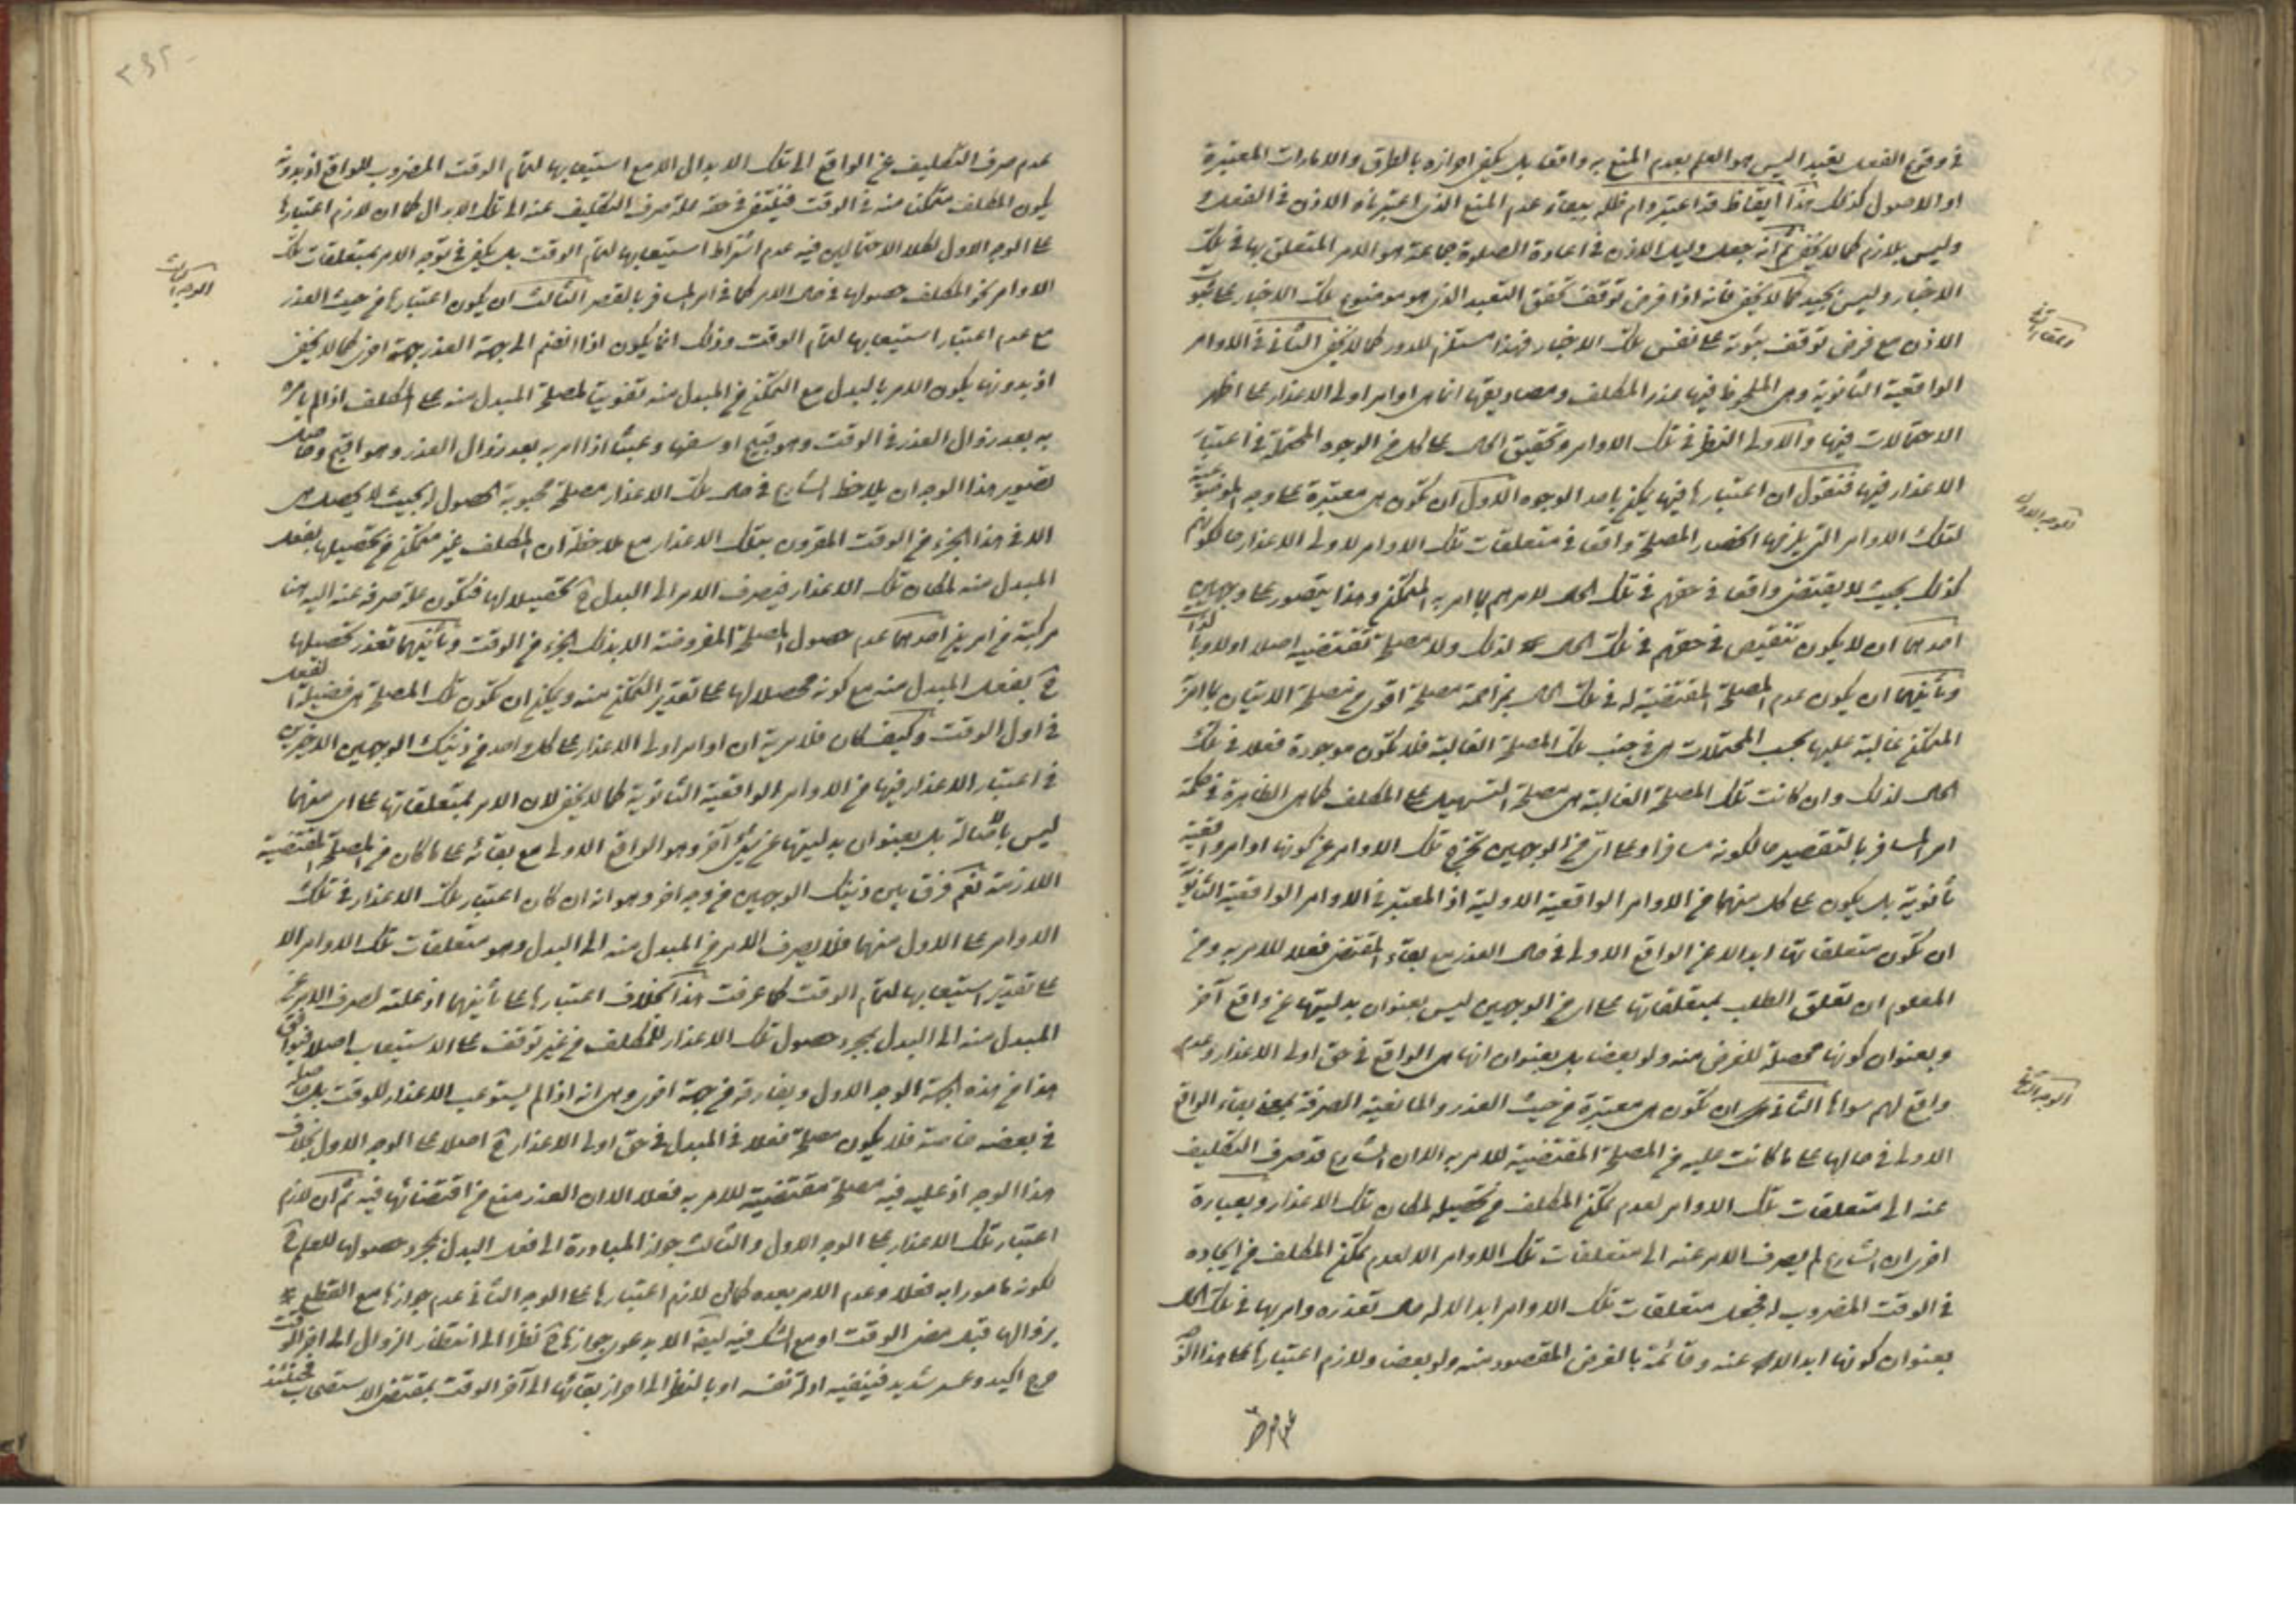 في وقوع الفعل بقيد اليس هو العلم بعدم المنع به واقعا بل يكفي احرازه بالطرق والامارات المعتبرة
او الاصول كذلك هذا ايقاظ قد اعتبر دام ظله بقاء عدم المنع الذي اعتبرناه الاذن في الفعل
وليس بلازم كما لا يخفى ثم انه جعل دليل الاذن في اعادة الصلوة جماعة هو الامر المتعلق بها في تلك
الاخبار وليس بجيد كما لا يخفى فانه اذا فرض توقف تحقق التعبد الذي هو موضوع تلك الاخبار على ثبوت
الاذن مع فرض توقف ثبوته على نفس تلك الاخبار فهذا مستلزم للدور كما لا يخفى الثاني في الاوامر
المقام الثاني
الواقعية الثانوية وهي الملحوظ فيها عذر المكلف ومصاديقها انما هي اوامر اولى الاعذار على اظهر
الاحتمالات فيها والاولى النظر في تلك الاوامر وتحقيق الحال على كل من الوجوه المحتملة في اعتبار
الاعذار فيها فنقول ان اعتبارها فيها يمكن باحد الوجوه الاول ان تكون هي معتبرة على وجه الموضوعية
الوجه الاول
لتلك الاوامر التي يلزمها انحصار المصلحة واقعا في متعلقات تلك الاوامر لاولى الاعذار ما كونهم
كذلك بحيث لا يقتضي واقعا في حقهم في تلك الحال لامرهم بما امر به المتمكن وهذا يتصور على وجهين
احدهما ان لا يكون تنقيص في حقهم في تلك الحال لذلك ولا مصلحة تقتضيه اصلا اولا وبالذات
وثانيهما ان يكون عدم المصلحة المقتضية له في تلك الحال بمزاحمة مصلحة اقوى من مصلحة الاتيان بما امر
المتمكن غالبة عليها بحسب المحتملات هي في جنب تلك المصلحة الغالبة فلا تكون موجودة فعلا في تلك
الحال لذلك وان كانت تلك المصلحة الغالبة هي مصلحة التسهيل على المكلف كما هي الظاهرة في حكمة
امر المسافر بالتقصير حال كونه مسافرا وعلى اي من الوجهين تخرج تلك الاوامر عن كونها اوامر واقعية
ثانوية بل يكون على كل منهما من الاوامر الواقعية الاولية اذ المعتبر في الاوامر الواقعية الثانوية
ان تكون متعلقاتها ابدالا عن الواقع الاولى في حال العذر مع بقاء المقتضي فعلا للامر به ومن
المعلوم ان تعلق الطلب بمتعلقاتها على اي من الوجهين ليس بعنوان بدليتها عن واقع آخر
وبعنوان كونها محصلة للغرض منه ولو بعضا بل بعنوان انها هي الواقع في حق اولى الاعذار وعدم
واقع لهم سواها الثاني ان تكون هي معتبرة من حيث العذر والمانعية الصرفة بمعنى بقاء الواقع
الوجه الثاني
الاولى في حالها على ما كانت عليه من المصلحة المقتضية للامر به الا ان الشارع قد صرف التكليف
عنه الى متعلقات تلك الاوامر لعدم تمكن المكلف من تحصيله لمكان تلك الاعذار وبعبارة
اخرى ان الشارع لم يصرف الامر عنه الى متعلقات تلك الاوامر الا لعدم تمكن المكلف من ايجاده
في الوقت المضروب له فجعل متعلقات تلك الاوامر ابدالا له حال تعذره وامر بها في تلك الحال
بعنوان كونها ابدالا عنه وقائمة بالغرض المقصود منه ولو بعضا ولازم اعتبارها على هذا الوجه
عدم صرف
عدم صرف التكليف عن الواقع الى تلك الابدال الا مع استيعابها لتمام الوقت المضروب للواقع اذ بدونه
يكون المكلف متمكنا منه في الوقت فينتفي في حقه علة صرف التكليف عنه الى تلك الابدال كما ان لازم اعتبارها
على الوجه الاول بكلا الاحتمالين فيه عدم اشتراط استيعابها لتمام الوقت بل يكفي في توجه الامر بمتعلقات تلك
الاوامر نحو المكلف حصولها في حال الامر كما في امر المسافر بالقصر الثالث ان يكون اعتبارها من حيث العذر
الوجه الثالث
مع عدم اعتبار استيعابها لتمام الوقت وذلك انما يكون اذا انضم الى جهة العذر جهة اخرى كما لا يخفى
اذ بدونها يكون الامر بالبدل مع التمكن من المبدل منه تفويتا لمصلحة المبدل منه على المكلف اذا لم يأمره
به بعد زوال العذر في الوقت وهو قبيح او سفها وعبثا اذا امر به بعد زوال العذر وهو اقبح وحاصل
تصوير هذا الوجه ان يلاحظ الشارع في حال تلك الاعذار مصلحة محبوبة الحصول له بحيث لا يحصل هي
الا في هذا الجزء من الوقت المقرون بتلك الاعذار مع ملاحظة ان المكلف غير متمكن من تحصيلها بفعل
المبدل منه لمكان تلك الاعذار فيصرف الامر الى البدل ح تحصيلا لها فتكون علة صرفه عنه اليه هنا
مركبة من امرين احدهما عدم حصول المصلحة المفروضة الا بذلك الجزء من الوقت وثانيهما تعذر تحصيلها
ح بفعل المبدل منه مع كونه محصلا لها على تقدير التمكن منه ويمكن ان تكون تلك المصلحة هي فضيلة الفعل
في اول الوقت وكيف كان فلا مرية ان اوامر اولى الاعذار على كل واحد من ذينك الوجهين الاخيرين
في اعتبار الاعذار فيها من الاوامر الواقعية الثانوية كما لا يخفى لان الامر بمتعلقاتها على اي منهما
ليس باصالة بل بعنوان بدليتها عن شيء آخر وهو الواقع الاولى مع بقائه على ما كان من المصلحة المقتضية
اللازمة نعم فرق بين ذينك الوجهين من وجه اخر وهو انه ان كان اعتبار تلك الاعذار في تلك
الاوامر على الاول منهما فلا يصرف الامر من المبدل منه الى البدل وهو متعلقات تلك الاوامر الا
على تقدير استيعابها لتمام الوقت كما عرفت هذا بخلاف اعتبارها على ثانيهما اذ علته لصرف الامر عن
المبدل منه الى البدل بمجرد حصول تلك الاعذار للمكلف من غير توقف على الاستيعاب اصلا فيوافق
هذا من هذه الجهة الوجه الاول ويفارقه من جهة اخرى وهي انه اذا لم يستوعب الاعذار للوقت بل حاصلة
في بعضه خاصة فلا يكون مصلحة فعلا في المبدل في حق اولى الاعذار ح اصلا على الوجه الاول بخلاف
هذا الوجه اذ عليه فيه مصلحة مقتضية للامر به فعلا الا ان العذر منع من اقتضائها فيه ثم ان لازم
اعتبار تلك الاعذار على الوجه الاول والثالث جواز المبادرة الى فعل البدل بمجرد حصولها للعلم ح
لكونه مامورا به فعلا وعدم الامر بعده كما ان لازم اعتبارها على الوجه الثاني عدم جوازها مع القطع
بزوالها قبل مضي الوقت او مع الشك فيه ايضا الا بدعوى جوازها ح نظرا الى انتظار الزوال الى اخر الوقت
حرج اكيد وعسر شديد فينفيه ادلة نفيه او بالنظر الى احراز بقائها الى آخر الوقت بمقتضى الاستصحاب فحينئذ